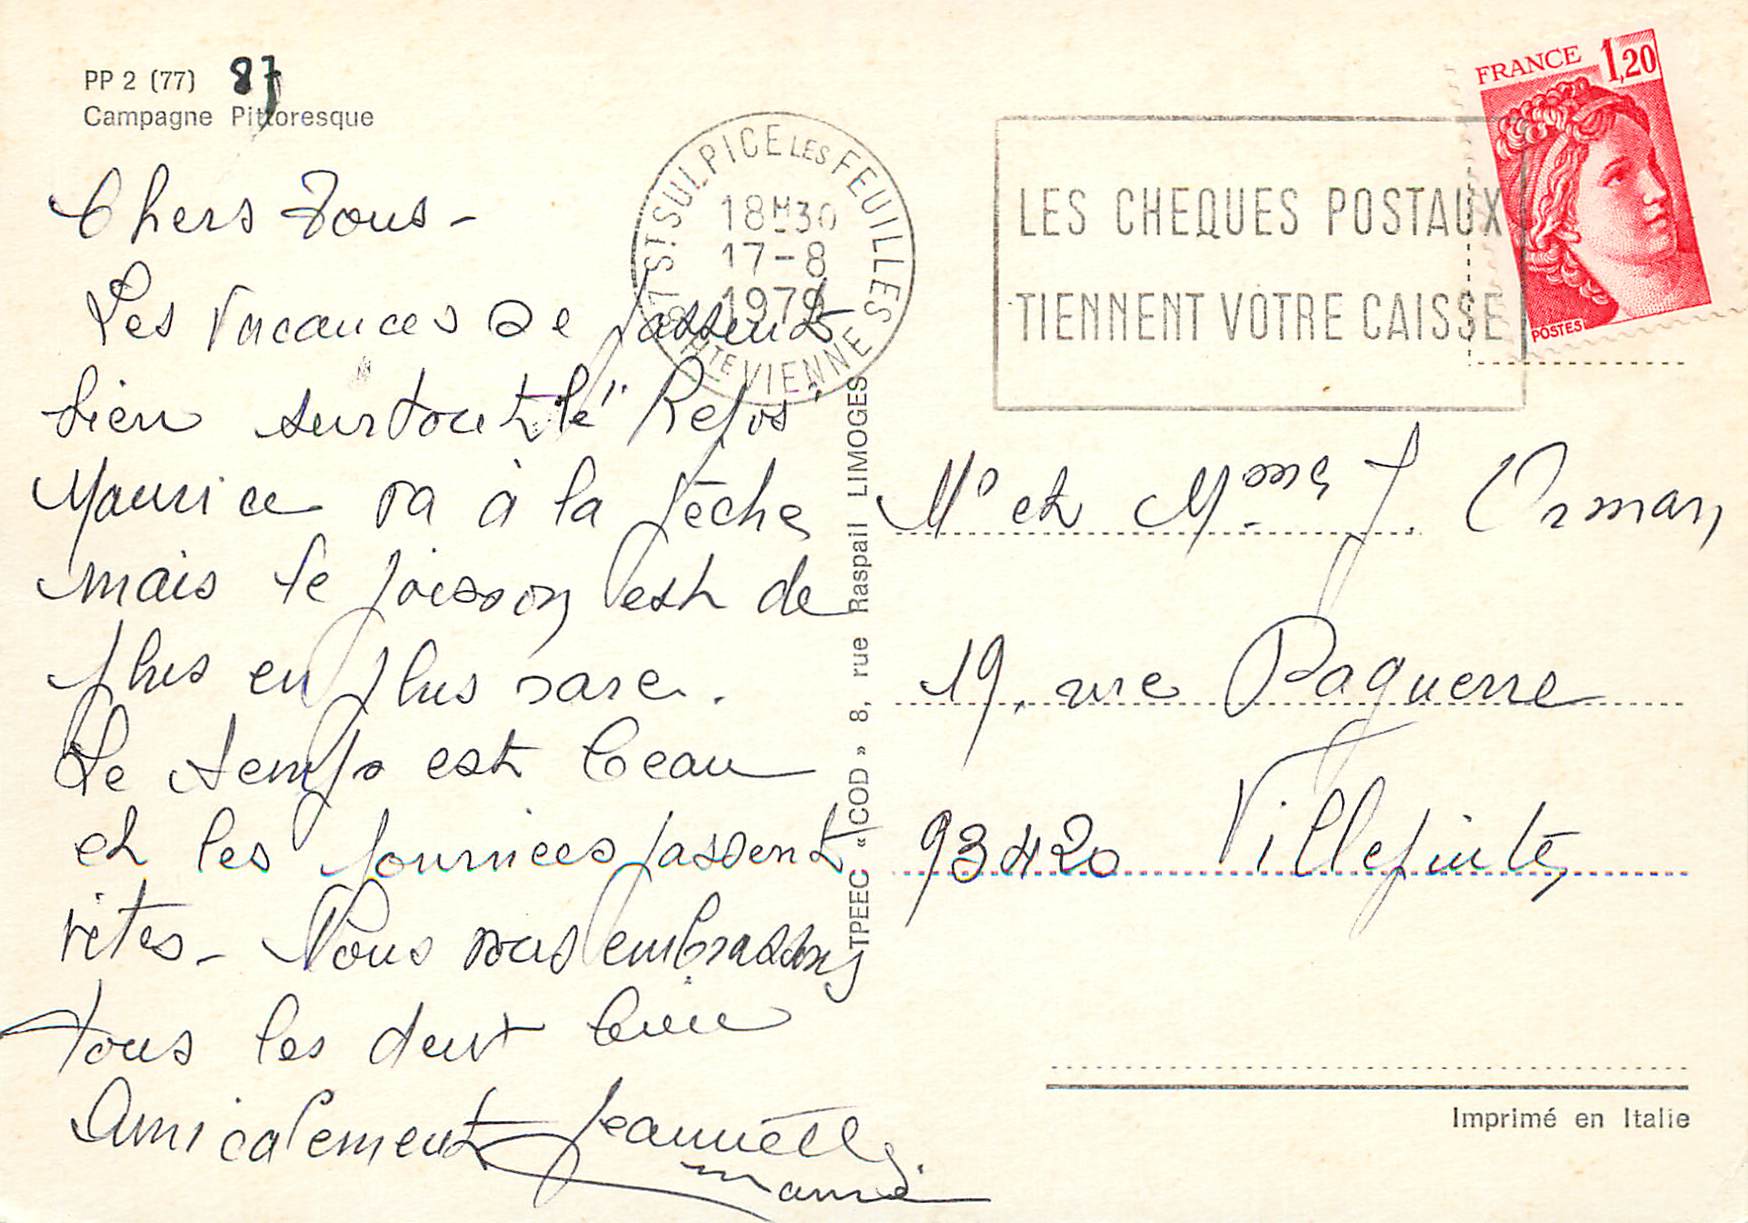 PP 2 (77) 87
Campagne Pittoresque
Chers Tous -
Les Vacances se passent
bien surtout le "Repos"
Maurice va à la pêche
mais le poisson est de
plus en plus rare.
Le temps est beau
et les journées passent
vites - Nous vous embrassons
tous les deux bien
Amicalement Jeannette
87 ST SULPICE LES FEUILLES
18H30
17-8
1979
HTE VIENNE
LES CHEQUES POSTAUX
TIENNENT VOTRE CAISSE
FRANCE 1,20
POSTES
TPEEC «COD» 8, rue Raspail LIMOGES
Mr et Mme J.
19, rue Paquerre
93420 Villepinte
Imprimé en Italie